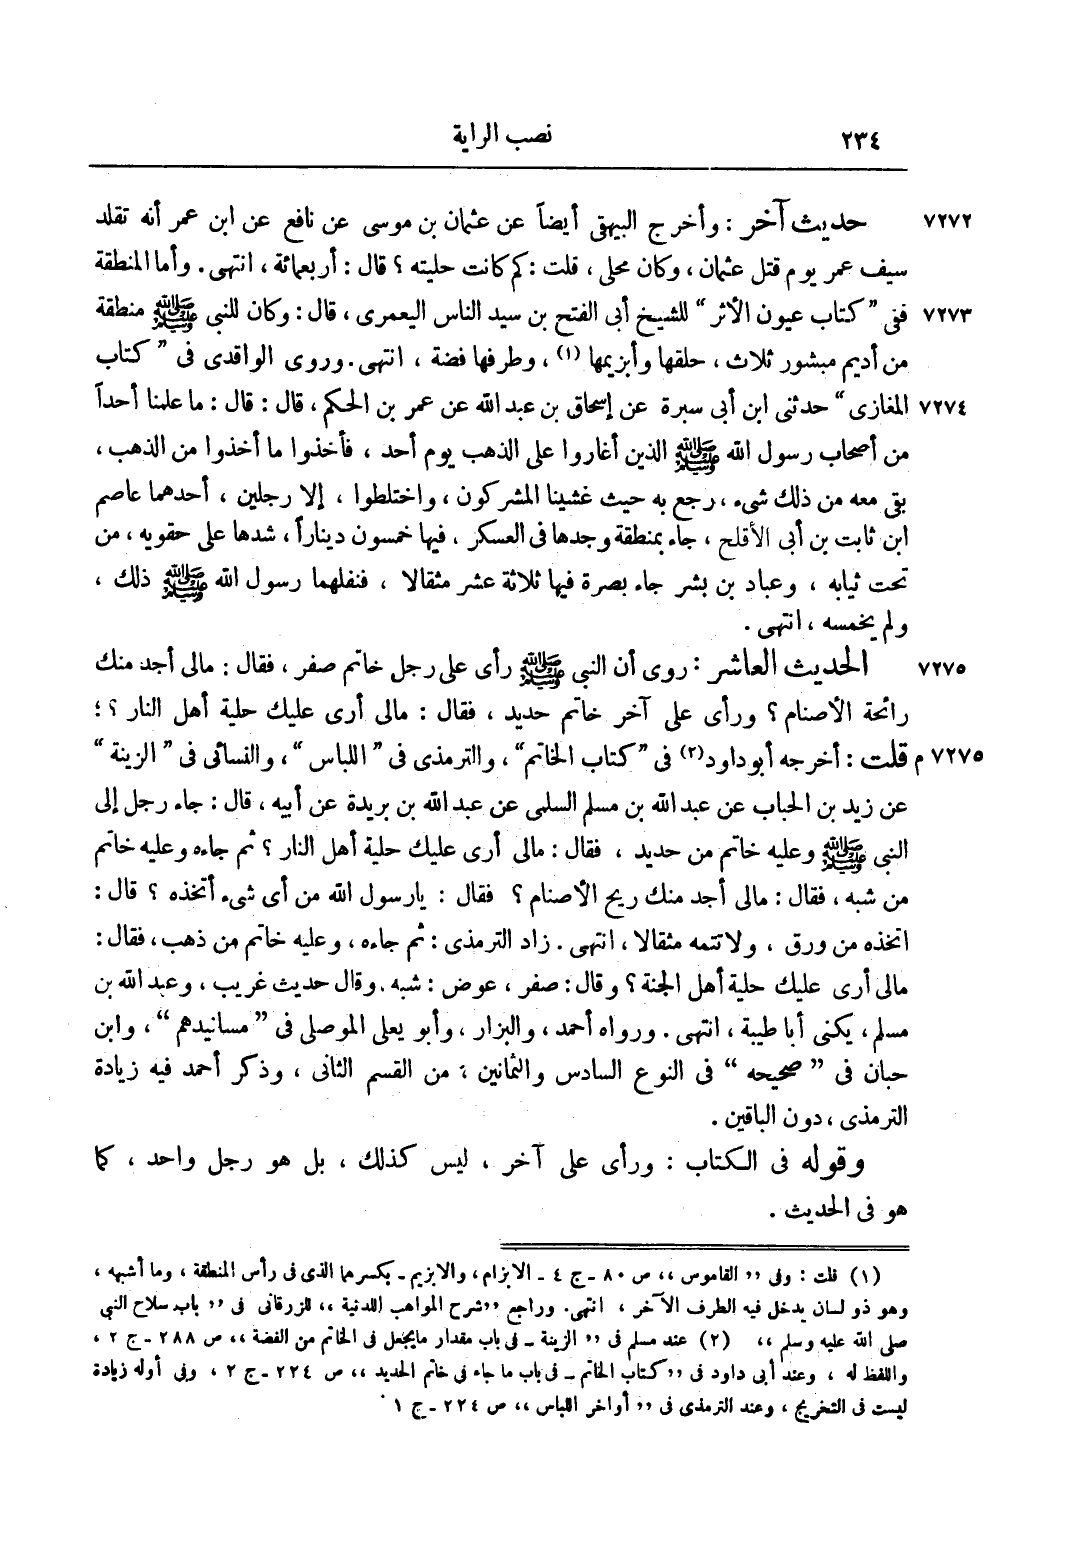 ٢٣٤ نصب الراية
٧٢٧٢ حديث آخر : وأخرج البيهقى أيضاً عن عثمان بن موسى عن نافع عن ابن عمر أنه تقلد
سيف عمر يوم قتل عثمان ، وكان محلى ، قلت : كم كانت حليته ؟ قال : أربعمائة ، انتهى . وأما المنطقة
٧٢٧٣ ففى " كتاب عيون الأثر " للشيخ أبى الفتح بن سيد الناس اليعمرى ، قال : وكان للنبى ﷺ منطقة
من أديم مبشور ثلاث ، حلقها وأبزيمها (١) ، وطرفها فضة ، انتهى . وروى الواقدى فى " كتاب
٧٢٧٤ المغازى " حدثنى ابن أبى سبرة عن إسحاق بن عبد الله عن عمر بن الحكم ، قال : قال : ما علمنا أحداً
من أصحاب رسول الله ﷺ الذين أغاروا على الذهب يوم أحد ، فأخذوا ما أخذوا من الذهب ،
بقى معه من ذلك شىء ، رجع به حيث غشينا المشركون ، واختلطوا ، إلا رجلين ، أحدهما عاصم
ابن ثابت بن أبى الأقلح ، جاء بمنطقة وجدها فى العسكر ، فيها خمسون ديناراً ، شدها على حقويه ، من
تحت ثيابه ، وعباد بن بشر جاء بصرة فيها ثلاثة عشر مثقالا ، فنفلهما رسول الله ﷺ ذلك ،
ولم يخمسه ، انتهى .
٧٢٧٥ الحديث العاشر : روى أن النبى ﷺ رأى على رجل خاتم صفر ، فقال : مالى أجد منك
رائحة الأصنام ؟ ورأى على آخر خاتم حديد ، فقال : مالى أرى عليك حلية أهل النار ؟ ؛
٧٢٧٥ م قلت : أخرجه أبو داود (٢) فى " كتاب الخاتم " ، والترمذى فى " اللباس " ، والنسائى فى " الزينة "
عن زيد بن الحباب عن عبد الله بن مسلم السلمى عن عبد الله بن بريدة عن أبيه ، قال : جاء رجل إلى
النبى ﷺ وعليه خاتم من حديد ، فقال : مالى أرى عليك حلية أهل النار ؟ ثم جاءه وعليه خاتم
من شبه ، فقال : مالى أجد منك ريح الأصنام ؟ فقال : يارسول الله من أى شىء أتخذه ؟ قال :
اتخذه من ورق ، ولا تتمه مثقالا ، انتهى . زاد الترمذى : ثم جاءه ، وعليه خاتم من ذهب ، فقال :
مالى أرى عليك حلية أهل الجنة ؟ وقال : صفر ، عوض : شبه . وقال حديث غريب ، وعبد الله بن
مسلم ، يكنى أبا طيبة ، انتهى . ورواه أحمد ، والبزار ، وأبو يعلى الموصلى فى " مسانيدهم " ، وابن
حبان فى " صحيحه " فى النوع السادس والثمانين ، من القسم الثانى ، وذكر أحمد فيه زيادة
الترمذى ، دون الباقين .
وقوله فى الكتاب : ورأى على آخر ، ليس كذلك ، بل هو رجل واحد ، كما
هو فى الحديث .
(١) قلت : وفى ,, القاموس ,, ص ٨٠ ـ ج ٤ ـ الابزام ، والابزيم ـ بكسرهما الذى فى رأس المنطقة ، وما أشبهه ،
وهو ذو لسان يدخل فيه الطرف الآخر ، انتهى . وراجع ,, شرح المواهب اللدنية ,, للزرقانى فى ,, باب سلاح النبى
صلى الله عليه وسلم ,, (٢) عند مسلم فى ,, الزينة ـ فى باب مقدار مايجعل فى الخاتم من الفضة ,, ص ٢٨٨ ـ ج ٢ ،
واللفظ له ، وعند أبى داود فى ,, كتاب الخاتم ـ فى باب ما جاء فى خاتم الحديد ,, ص ٢٢٤ ـ ج ٢ ، وفى أوله زيادة
ليست فى التخريج ، وعند الترمذى فى ,, أواخر اللباس ,, ص ٢٢٤ ـ ج ١ .